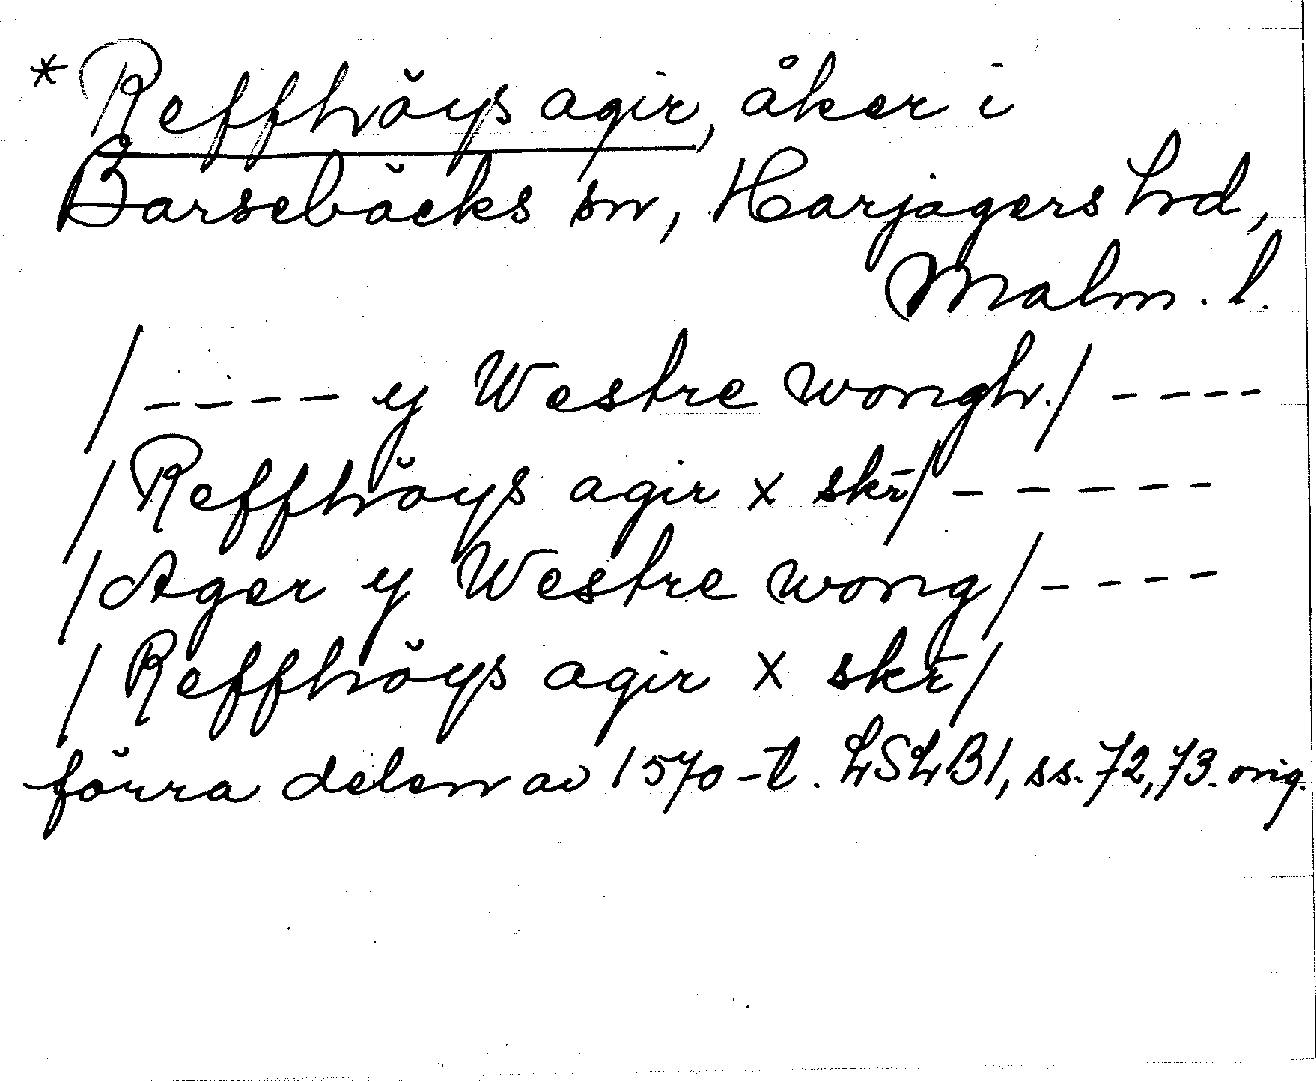 * Reffhöys agir, åker i
Barsebäcks sn, Harjagers hd,
Malm. l.
/---- y Westre wongh./ ----
/Reffhöys agir x skr/ -----
/Ager y Westre wong/ ----
/Reffhöys agir x skr/
förra delen av 1570-t. LSLB1, ss. 72, 73. orig.